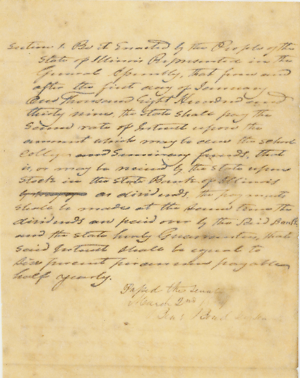 Section 1. Be it Enacted by the People of the
State of Illinois Represented in the
General Assembly, that from and
after the first day of January
One Thousand Eight Hundred and
thirty nine, the State shall pay the
Same rate of Interest upon the
amount which may be owed the School
College and Seminary funds, that
is, or may be received by the State upon
Stock in the State Bank of Illinois
as dividends, the payments
shall be made at the Same time the
dividends are paid over by the Said Bank
and the State hereby Guaranties, that
Said Interest shall be equal to
Six percent per annum payable
half yearly.
Passed the Senate
March 2nd